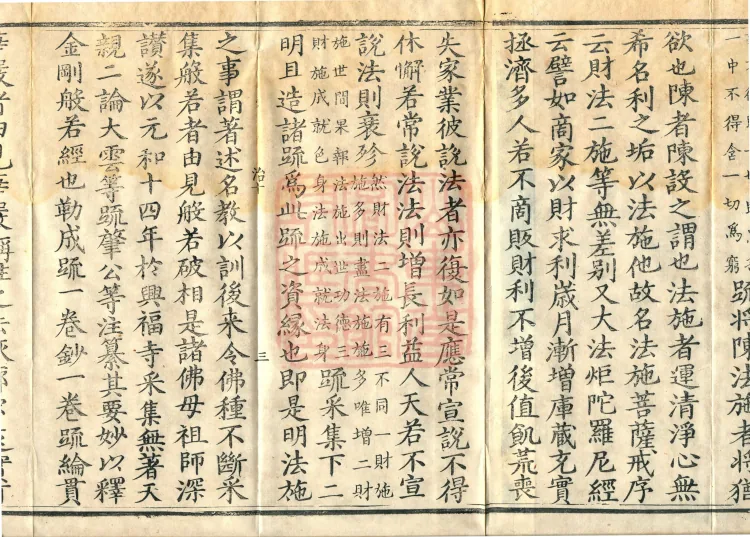 一中不得舍一切為窮䟽將陳法施者將猶
欲也陳者陳設之謂也法施者運清淨心無
希名利之垢以法施他故名法施菩薩戒序
云財法二施等無差别又大法炬陀羅尼經
云譬如商家以財求利歲月漸增庫藏充實
拯濟多人若不商販財利不增後值飢荒喪
失家業彼說法者亦復如是應常宣說不得
休懈若常說法法則增長利益人天若不宣
說法則衰殄然財法二施有三不同一財施
施多則盡法施施多唯增二財
施世間果報法施出世功德三
財施成就色身法施成就法身䟽采集下二
明且造諸䟽爲此䟽之資緣也即是明法施
治十 三
之事謂著述名教以訓後来令佛種不斷采
集般若者由見般若破相是諸佛母祖師深
讃遂以元和十四年於興福寺采集無著天
親二論大雲等䟽肇公等注纂其要妙以釋
金剛般若經也勒成䟽一卷鈔一卷䟽綸貫